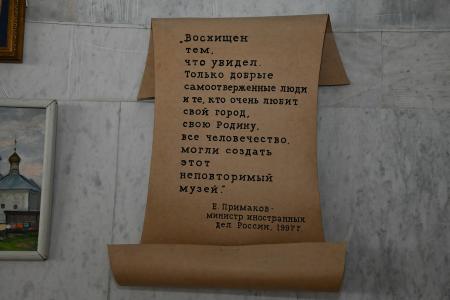 „Восхищен
тем,
что увидел.
Только добрые
самоотверженные люди
и те, кто очень любит
свой город,
свою Родину,
все человечество,
могли создать
этот
неповторимый
музей."
Е. Примаков-
министр иностранных
дел России, 1997 г.